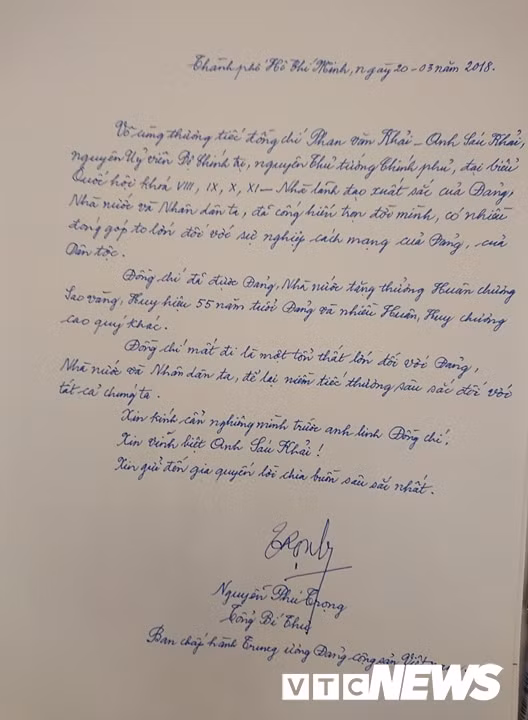 Thành phố Hồ Chí Minh, ngày 20-03 năm 2018.
Vô cùng thương tiếc đồng chí Phan Văn Khải - Anh Sáu Khải,
nguyên Uỷ viên Bộ Chính trị, nguyên Thủ tướng Chính phủ, đại biểu
Quốc hội khoá VIII, IX, X, XI - Nhà lãnh đạo xuất sắc của Đảng,
Nhà nước và Nhân dân ta, đã cống hiến trọn đời mình, có nhiều
đóng góp to lớn đối với sự nghiệp cách mạng của Đảng, của
Dân tộc.
Đồng chí đã được Đảng, Nhà nước tặng thưởng Huân chương
Sao vàng, Huy hiệu 55 năm tuổi Đảng và nhiều Huân, Huy chương
cao quý khác.
Đồng chí mất đi là một tổn thất lớn đối với Đảng,
Nhà nước và Nhân dân ta, để lại niềm tiếc thương sâu sắc đối với
tất cả chúng ta.
Xin kính cẩn nghiêng mình trước anh linh Đồng chí.
Xin vĩnh biệt Anh Sáu Khải!
Xin gửi đến gia quyến lời chia buồn sâu sắc nhất.
Trọng
Nguyễn Phú Trọng
Tổng Bí Thư
Ban chấp hành Trung ương Đảng cộng sản Việt
VTC NEWS